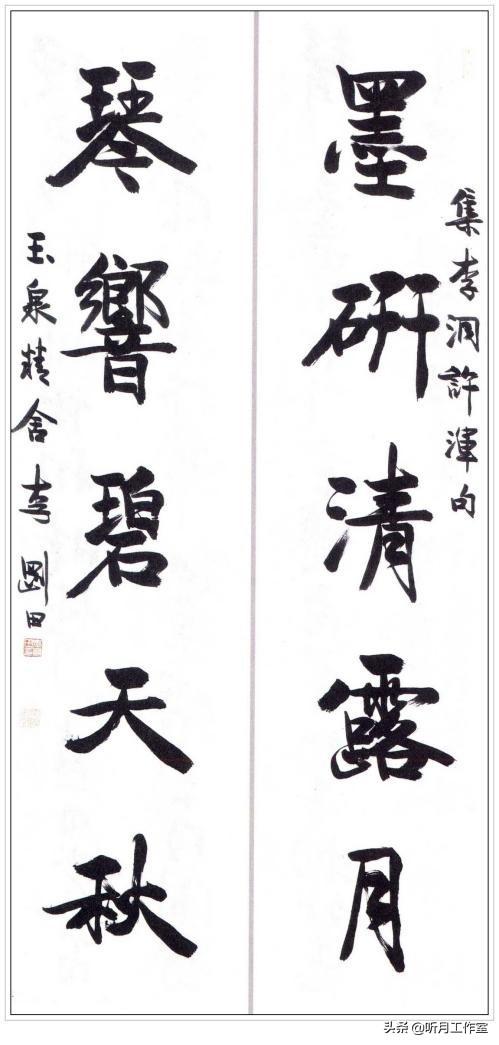 集李洞許渾句
墨研清露月
琴響碧天秋
玉泉精舍李剛田
头条 @听月工作室